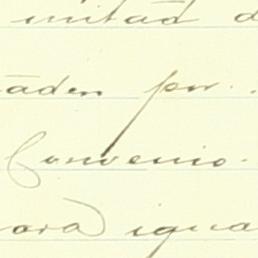 mitad d
áden por.
Convenio.
ará igua